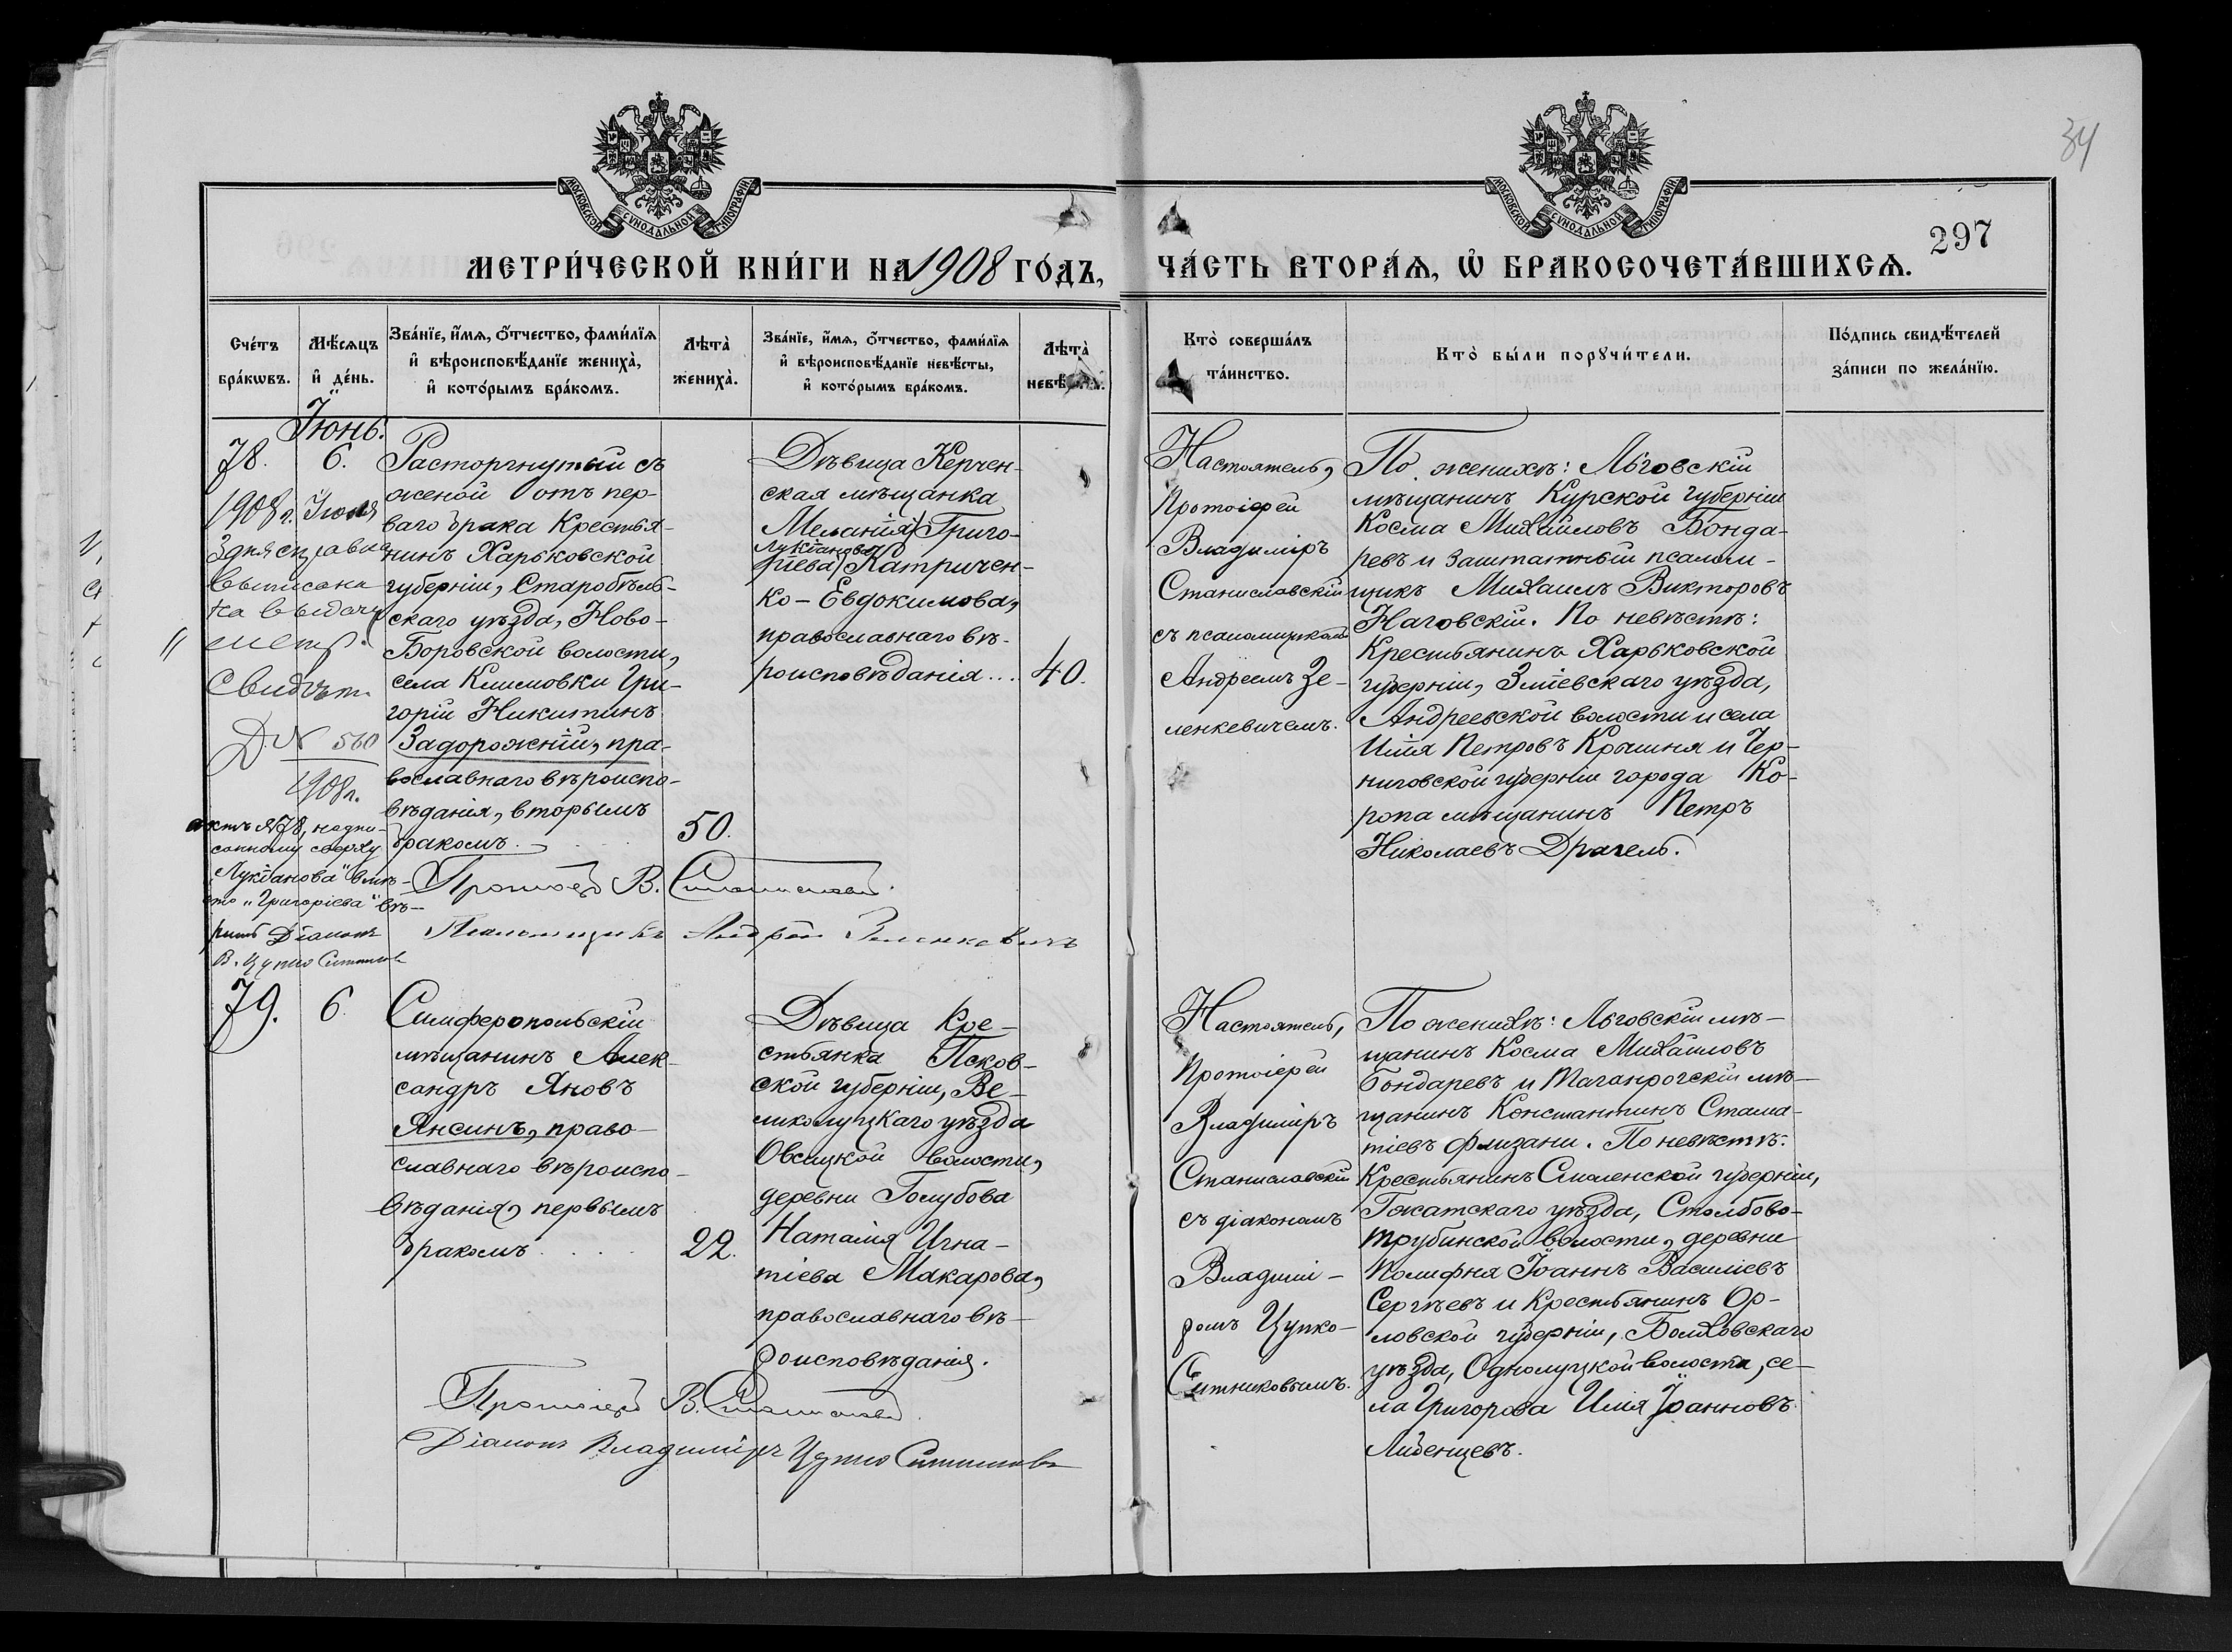 34
297
МОСКОВСКОЙ СѴНОДАЛЬНОЙ ТИПОГРАФІИ
МОСКОВСКОЙ СѴНОДАЛЬНОЙ ТИПОГРАФІИ
МЕТРИ́ЧЕСКОЙ КНИ́ГИ НА 1908 ГО́ДЪ,
ЧА́СТЬ ВТОРА́Ѧ, Ѡ҆ БРАКОСОЧЕТА́ВШИХСѦ.
Сче́тъ бра́кѡвъ.
Мѣ́сѧцъ и҆ де́нь.
Зва́нїе, и҆́мѧ, ѻ҆́тчество, фами́лїѧ
и҆ вѣроисповѣ́данїе жениха̀,
и҆ кото́рымъ бра́комъ.
Лѣта̀ жениха̀.
Зва́нїе, и҆́мѧ, ѻ҆́тчество, фами́лїѧ
и҆ вѣроисповѣ́данїе невѣ́сты,
и҆ кото́рымъ бра́комъ.
Лѣта̀
Кто̀ соверша́лъ
та́инство.
Кто̀ бы́ли порꙋчи́тели.
По́дпись свидѣ́телей
за́писи по жела́нїю.
Іюнь.
78.
6.
1908 г. Іюля
3 дня справка
выписана
на выдачу
метр.
Свидѣт.
Д. № 560
1908 г.
актъ №78, надпи-
санному сверху
"Лукіанова" вмѣ-
сто "Григоріева" вѣ-
рить Діаконъ
В. Цупко Ситников
Расторгнутый съ
женой отъ пер-
ваго брака Крестья-
нинъ Харьковской
губерніи, Старобѣль-
скаго уѣзда, Ново-
Боровской волости,
села Климовки Гри-
горій Никитинъ
Задорожній, пра-
вославнаго вѣроиспо-
вѣданія, вторымъ
бракомъ.
50.
Дѣвица Керчен-
ская мѣщанка
Меланія Григо-
Лукіанова
ріева Катричен-
ко-Евдокимова,
православнаго вѣ-
роисповѣданія...
40.
Протоіерей В. Станиславскій
Псаломщикъ Андрей Зеленкевичъ
Настоятель,
Протоіерей
Владиміръ
Станиславскій
съ псаломщикомъ
Андреемъ Зе-
ленкевичемъ.
По женихѣ: Льговскій
мѣщанинъ Курской губерніи
Косма Михайловъ Бонда-
ревъ и заштатный псалом-
щикъ Михаилъ Викторовъ
Наговскій. По невѣстѣ:
Крестьянинъ Харьковской
губерніи, Зміевскаго уѣзда,
Андреевской волости и села
Илія Петровъ Крышня и Чер-
ниговской губерніи города Ко-
ропа мѣщанинъ Петръ
Николаевъ Драгель.
79.
6.
Симферопольскій
мѣщанинъ Алек-
сандръ Яновъ
Янсинъ, право-
славнаго вѣроиспо-
вѣданія, первымъ
бракомъ
22.
Дѣвица Кре-
стьянка Псков-
ской губерніи, Ве-
ликолуцкаго уѣзда
Овсицкой волости,
деревни Голубова
Наталія Игна-
тіева Макарова,
православнаго вѣ-
роисповѣданія.
Протоіерей В. Станиславскій
Діаконъ Владиміръ Цупко Ситниковъ
Настоятель,
Протоіерей
Владиміръ
Станиславскій
съ діакономъ
Владимі-
ромъ Цупко-
Ситниковымъ.
По женихѣ: Льговскій мѣ-
щанинъ Косма Михайловъ
Бондаревъ и Таганрогскій мѣ-
щанинъ Константинъ Стама-
тіевъ Флизани. По невѣстѣ:
Крестьянинъ Смоленской губерніи,
Гжатскаго уѣзда, Столбово-
трубинской волости, деревни
Полифня Іоаннъ Василіевъ
Сергѣевъ и Крестьянинъ Ор-
ловской губерніи, Болховскаго
уѣзда, Однолуцкой волости, се-
ла Григорова Илія Іоанновъ
Лиденцевъ.